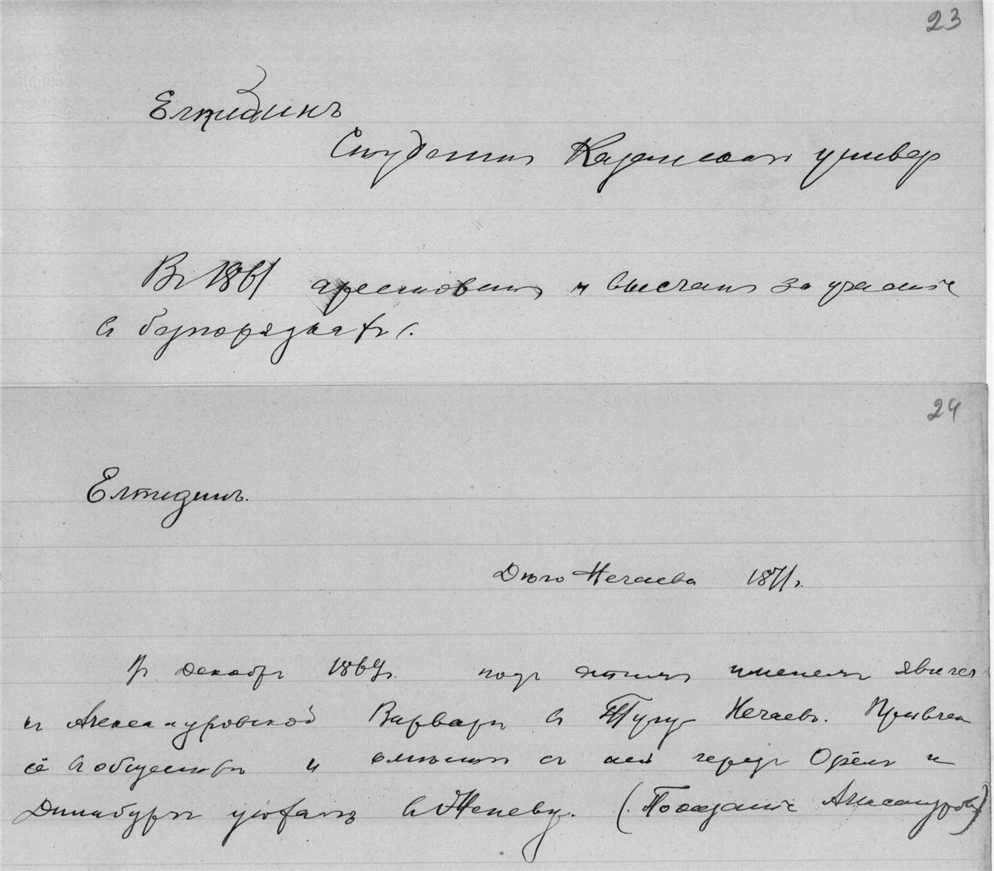 23
Елпидинъ
Студентъ Казанскаго универ
Въ 1861 арестованъ и высланъ за участіе
въ безпорядкахъ.
24
Елпидинъ.
Дѣло Нечаева 1871г.
Въ декабрѣ 1869г. подъ этимъ именемъ явился
къ Александровской Варварѣ въ Тулу Нечаевъ. Привлекъ
её въ общество и вмѣстѣ съ ней черезъ Орёлъ и
Динабургъ уѣхалъ въ Женеву. (Показаніе Александровск)